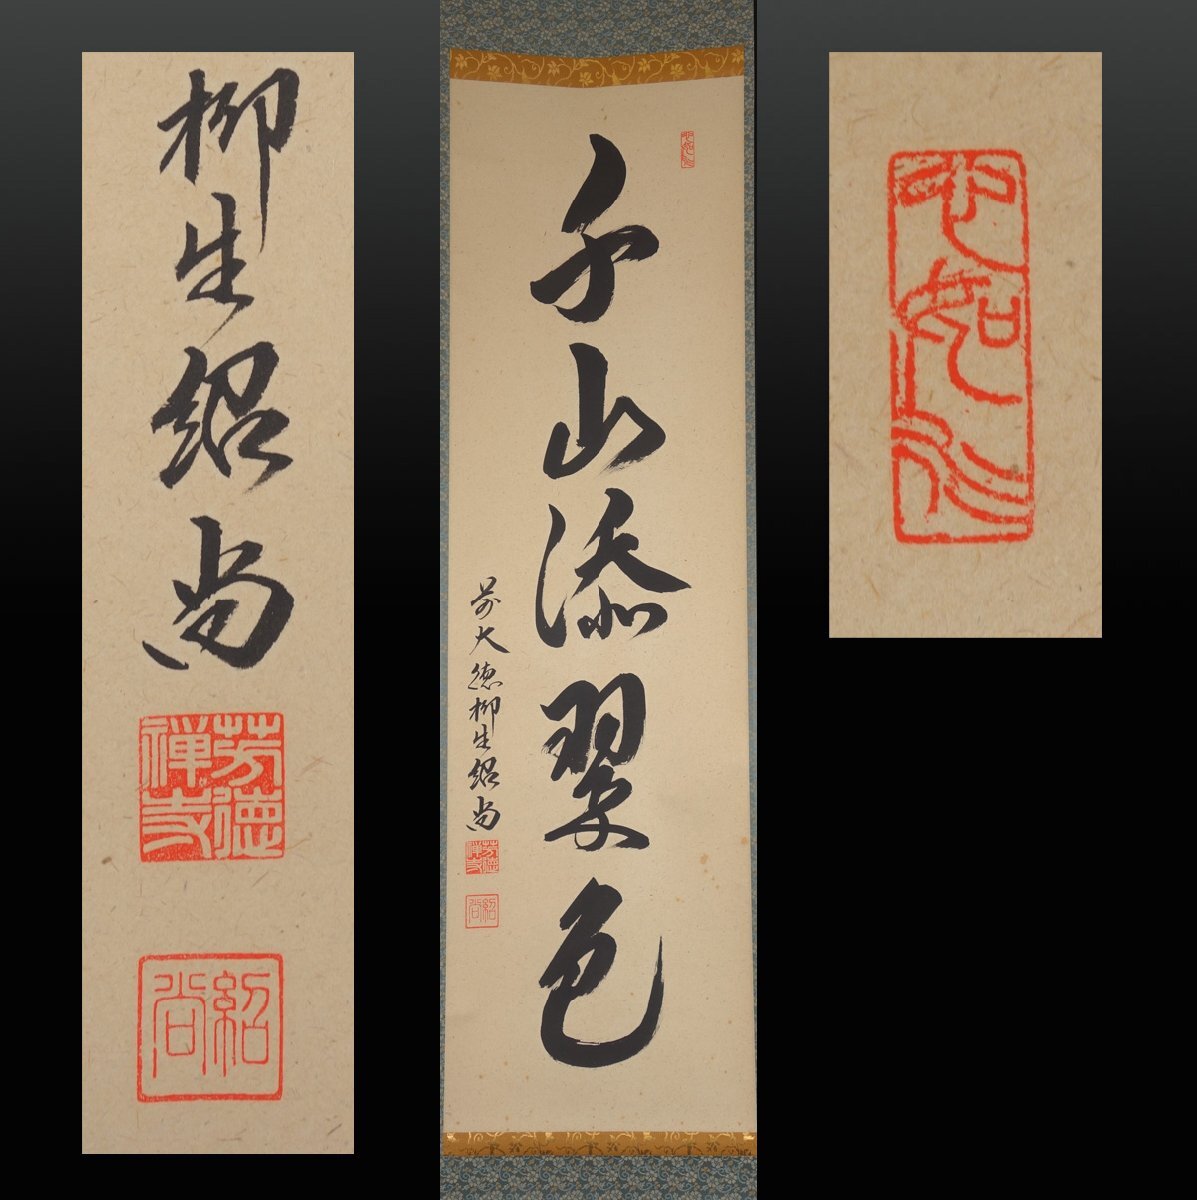 柳生紹尚
芳徳
禅寺
紹尚
千山添翠色
前大徳柳生紹尚
芳徳
禅寺
紹尚